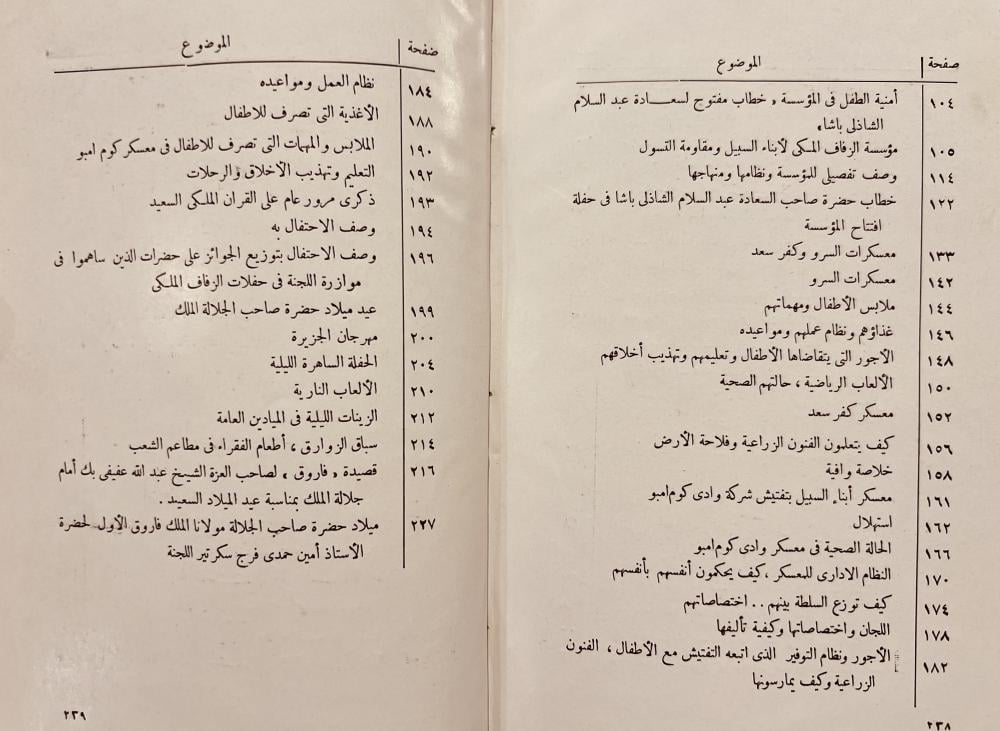 صفحة الموضوع
١٠٤ أمنية الطفل فى المؤسسة « خطاب مفتوح لسعـــادة عبد السلام
الشاذلى باشا»
١٠٥ مؤسسة الزفاف الملكى لأبناء السبيل ومقاومة التسول
١١٤ وصف تفصيلى للمؤسسة ونظامها ومنهاجها
١٢٢ خطاب حضرة صاحب السعادة عبد السلام الشاذلى باشا فى حفلة
افتتاح المؤسسة
١٣٣ معسكرات السرو وكفر سعد
١٤٢ معسكرات السرو
١٤٤ ملابس الأطفال ومهماتهم
١٤٦ غذاؤهم ونظام عملهم ومواعيده
١٤٨ الأجور التى يتقاضاها الأطفال وتعليمهم وتهذيب أخلاقهم
١٥٠ الألعاب الرياضية ، حالتهم الصحية
١٥٢ معسكر كفر سعد
١٥٦ كيف يتعلمون الفنون الزراعية وفلاحة الأرض
١٥٨ خلاصة وافية
١٦١ معسكر أبناء السبيل بتفتيش شركة وادى كوم امبو
١٦٢ استهلال
١٦٦ الحالة الصحية فى معسكر وادى كوم امبو
١٧٠ النظام الادارى للمعسكر ، كيف يحكمون أنفسهم بأنفسهم
١٧٤ كيف توزع السلطة بينهم .. اختصاصاتهم
١٧٨ اللجان واختصاصاتها وكيفية تأليفها
١٨٢ الأجور ونظام التوفير الذى اتبعه التفتيش مع الأطفال ، الفنون
الزراعية وكيف يمارسونها
٢٣٨
صفحة الموضوع
١٨٤ نظام العمل ومواعيده
١٨٨ الأغذية التى تصرف للاطفال
١٩٠ الملابس والمهمات التى تصرف للاطفال فى معسكر كوم امبو
١٩٢ التعليم وتهذيب الأخلاق والرحلات
١٩٣ ذكرى مرور عام على القران الملكى السعيد
١٩٤ وصف الاحتفال به
١٩٦ وصف الاحتفال بتوزيع الجوائز على حضرات الذين ساهموا فى
موازرة اللجنة فى حفلات الزفاف الملكى
١٩٩ عيد ميلاد حضرة صاحب الجلالة الملك
٢٠٠ مهرجان الجزيرة
٢٠٤ الحفلة الساهرة الليلية
٢١٠ الألعاب النارية
٢١٢ الزينات الليلية فى الميادين العامة
٢١٤ سباق الزوارق ، أطعام الفقراء فى مطاعم الشعب
٢١٦ قصيدة « فاروق » لصاحب العزة الشيخ عبد الله عفيفى بك أمام
جلالة الملك بمناسبة عيد الميلاد السعيد .
٢٢٧ ميلاد حضرة صاحب الجلالة مولانا الملك فاروق الأول لحضرة
الأستاذ أمين حمدى فرج سكرتير اللجنة
٢٣٩